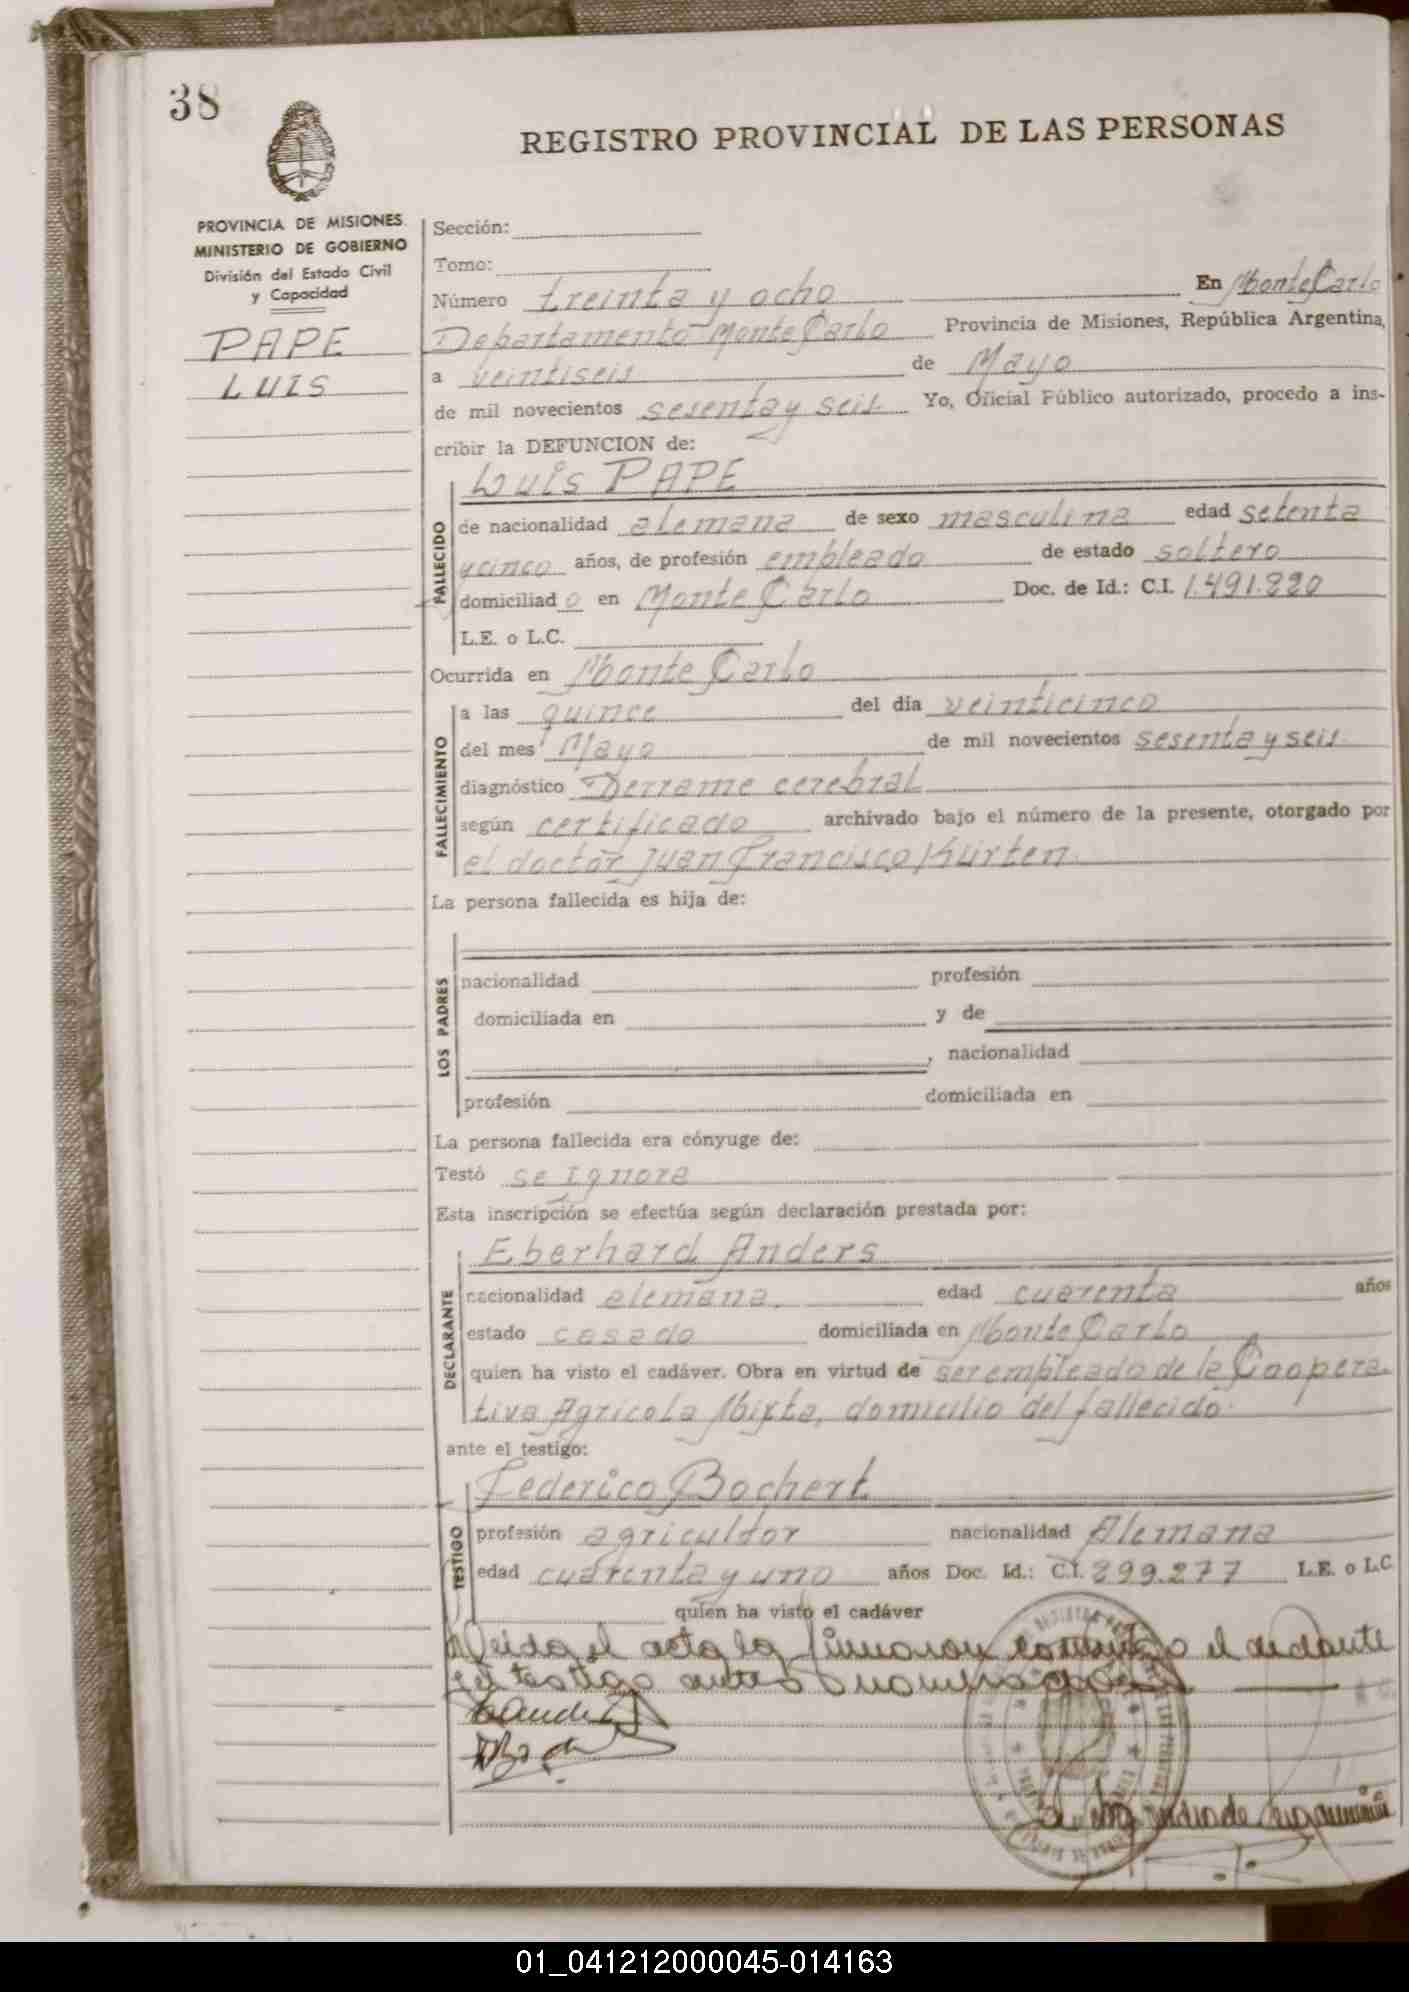 38
REGISTRO PROVINCIAL DE LAS PERSONAS
PROVINCIA DE MISIONES
MINISTERIO DE GOBIERNO
División del Estado Civil
y Capacidad
PAPE
LUIS
Sección:
Tomo:
Número treinta y ocho En Monte Carlo
Departamento Monte Carlo Provincia de Misiones, República Argentina,
a veintiseis de Mayo
de mil novecientos sesenta y seis. Yo, Oficial Público autorizado, procedo a ins-
cribir la DEFUNCION de:
FALLECIDO
Luis PAPE
de nacionalidad alemana de sexo masculina edad setenta
y cinco años, de profesión empleado de estado soltero
domiciliado en Monte Carlo Doc. de Id.: C.I. 1.491.820
L.E. o L.C.
Ocurrida en Monte Carlo
FALLECIMIENTO
a las quince del día veinticinco
del mes Mayo de mil novecientos sesenta y seis.
diagnóstico Derrame cerebral
según certificado archivado bajo el número de la presente, otorgado por
el doctor Juan Francisco Kürten.
La persona fallecida es hija de:
LOS PADRES
nacionalidad profesión
domiciliada en y de
, nacionalidad
profesión domiciliada en
La persona fallecida era cónyuge de:
Testó se ignora
Esta inscripción se efectúa según declaración prestada por:
DECLARANTE
Eberhard Anders
nacionalidad alemana. edad cuarenta años
estado casado domiciliada en Monte Carlo
quien ha visto el cadáver. Obra en virtud de ser empleado de la Coopera-
tiva Agricola Mixta, domicilio del fallecido.
ante el testigo:
TESTIGO
Federico Bochert
profesión agricultor nacionalidad Alemana
edad cuarenta y uno años Doc. Id.: C.I. 299.277 L.E. o L.C.
quien ha visto el cadáver
Leida el acta la firmaron conmigo el declarante
y el testigo antes nombrados
01_041212000045-014163